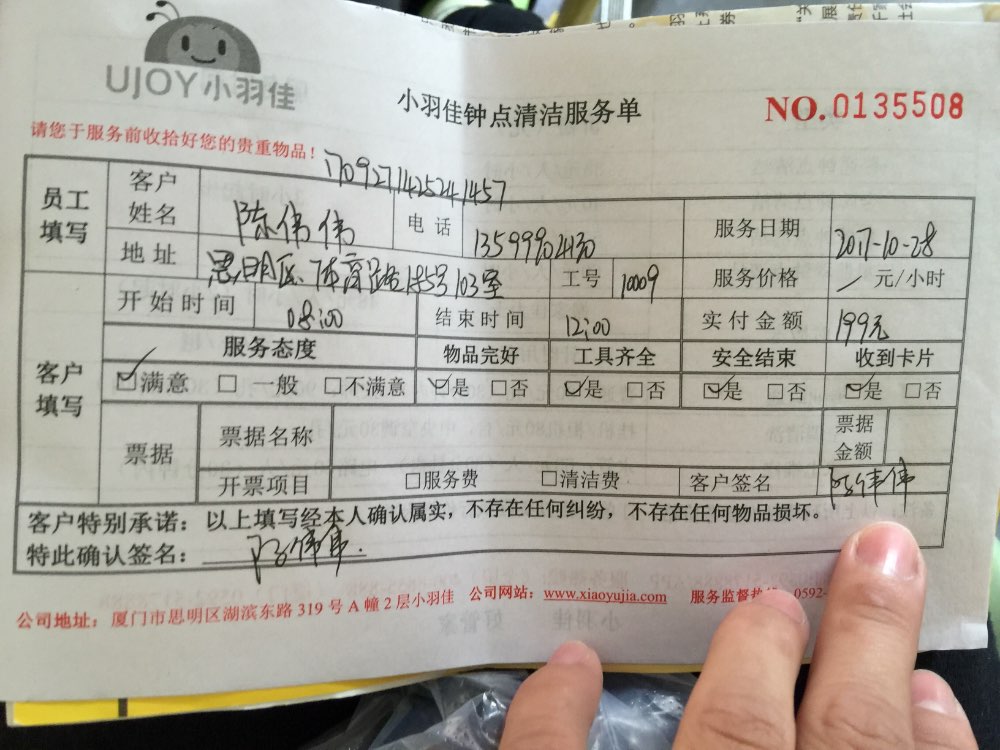 UJOY小羽佳
小羽佳钟点清洁服务单
NO.0135508
请您于服务前收拾好您的贵重物品！
1709271425241457
员工填写 客户姓名 陈伟伟 电话 服务日期 2017-10-28
地址 思明区体育路 103室 工号 10009 服务价格 / 元/小时
开始时间 08:00 结束时间 12:00 实付金额 199元
客户填写 服务态度 物品完好 工具齐全 安全结束 收到卡片
☑满意 □一般 □不满意 ☑是 □否 ☑是 □否 ☑是 □否 ☑是 □否
票据 票据名称 票据金额
开票项目 □服务费 □清洁费 客户签名 陈伟伟
客户特别承诺：以上填写经本人确认属实，不存在任何纠纷，不存在任何物品损坏。
特此确认签名：陈伟伟.
公司地址：厦门市思明区湖滨东路 319 号 A 幢 2 层小羽佳 公司网站：www.xiaoyujia.com 服务监督热线 0592-